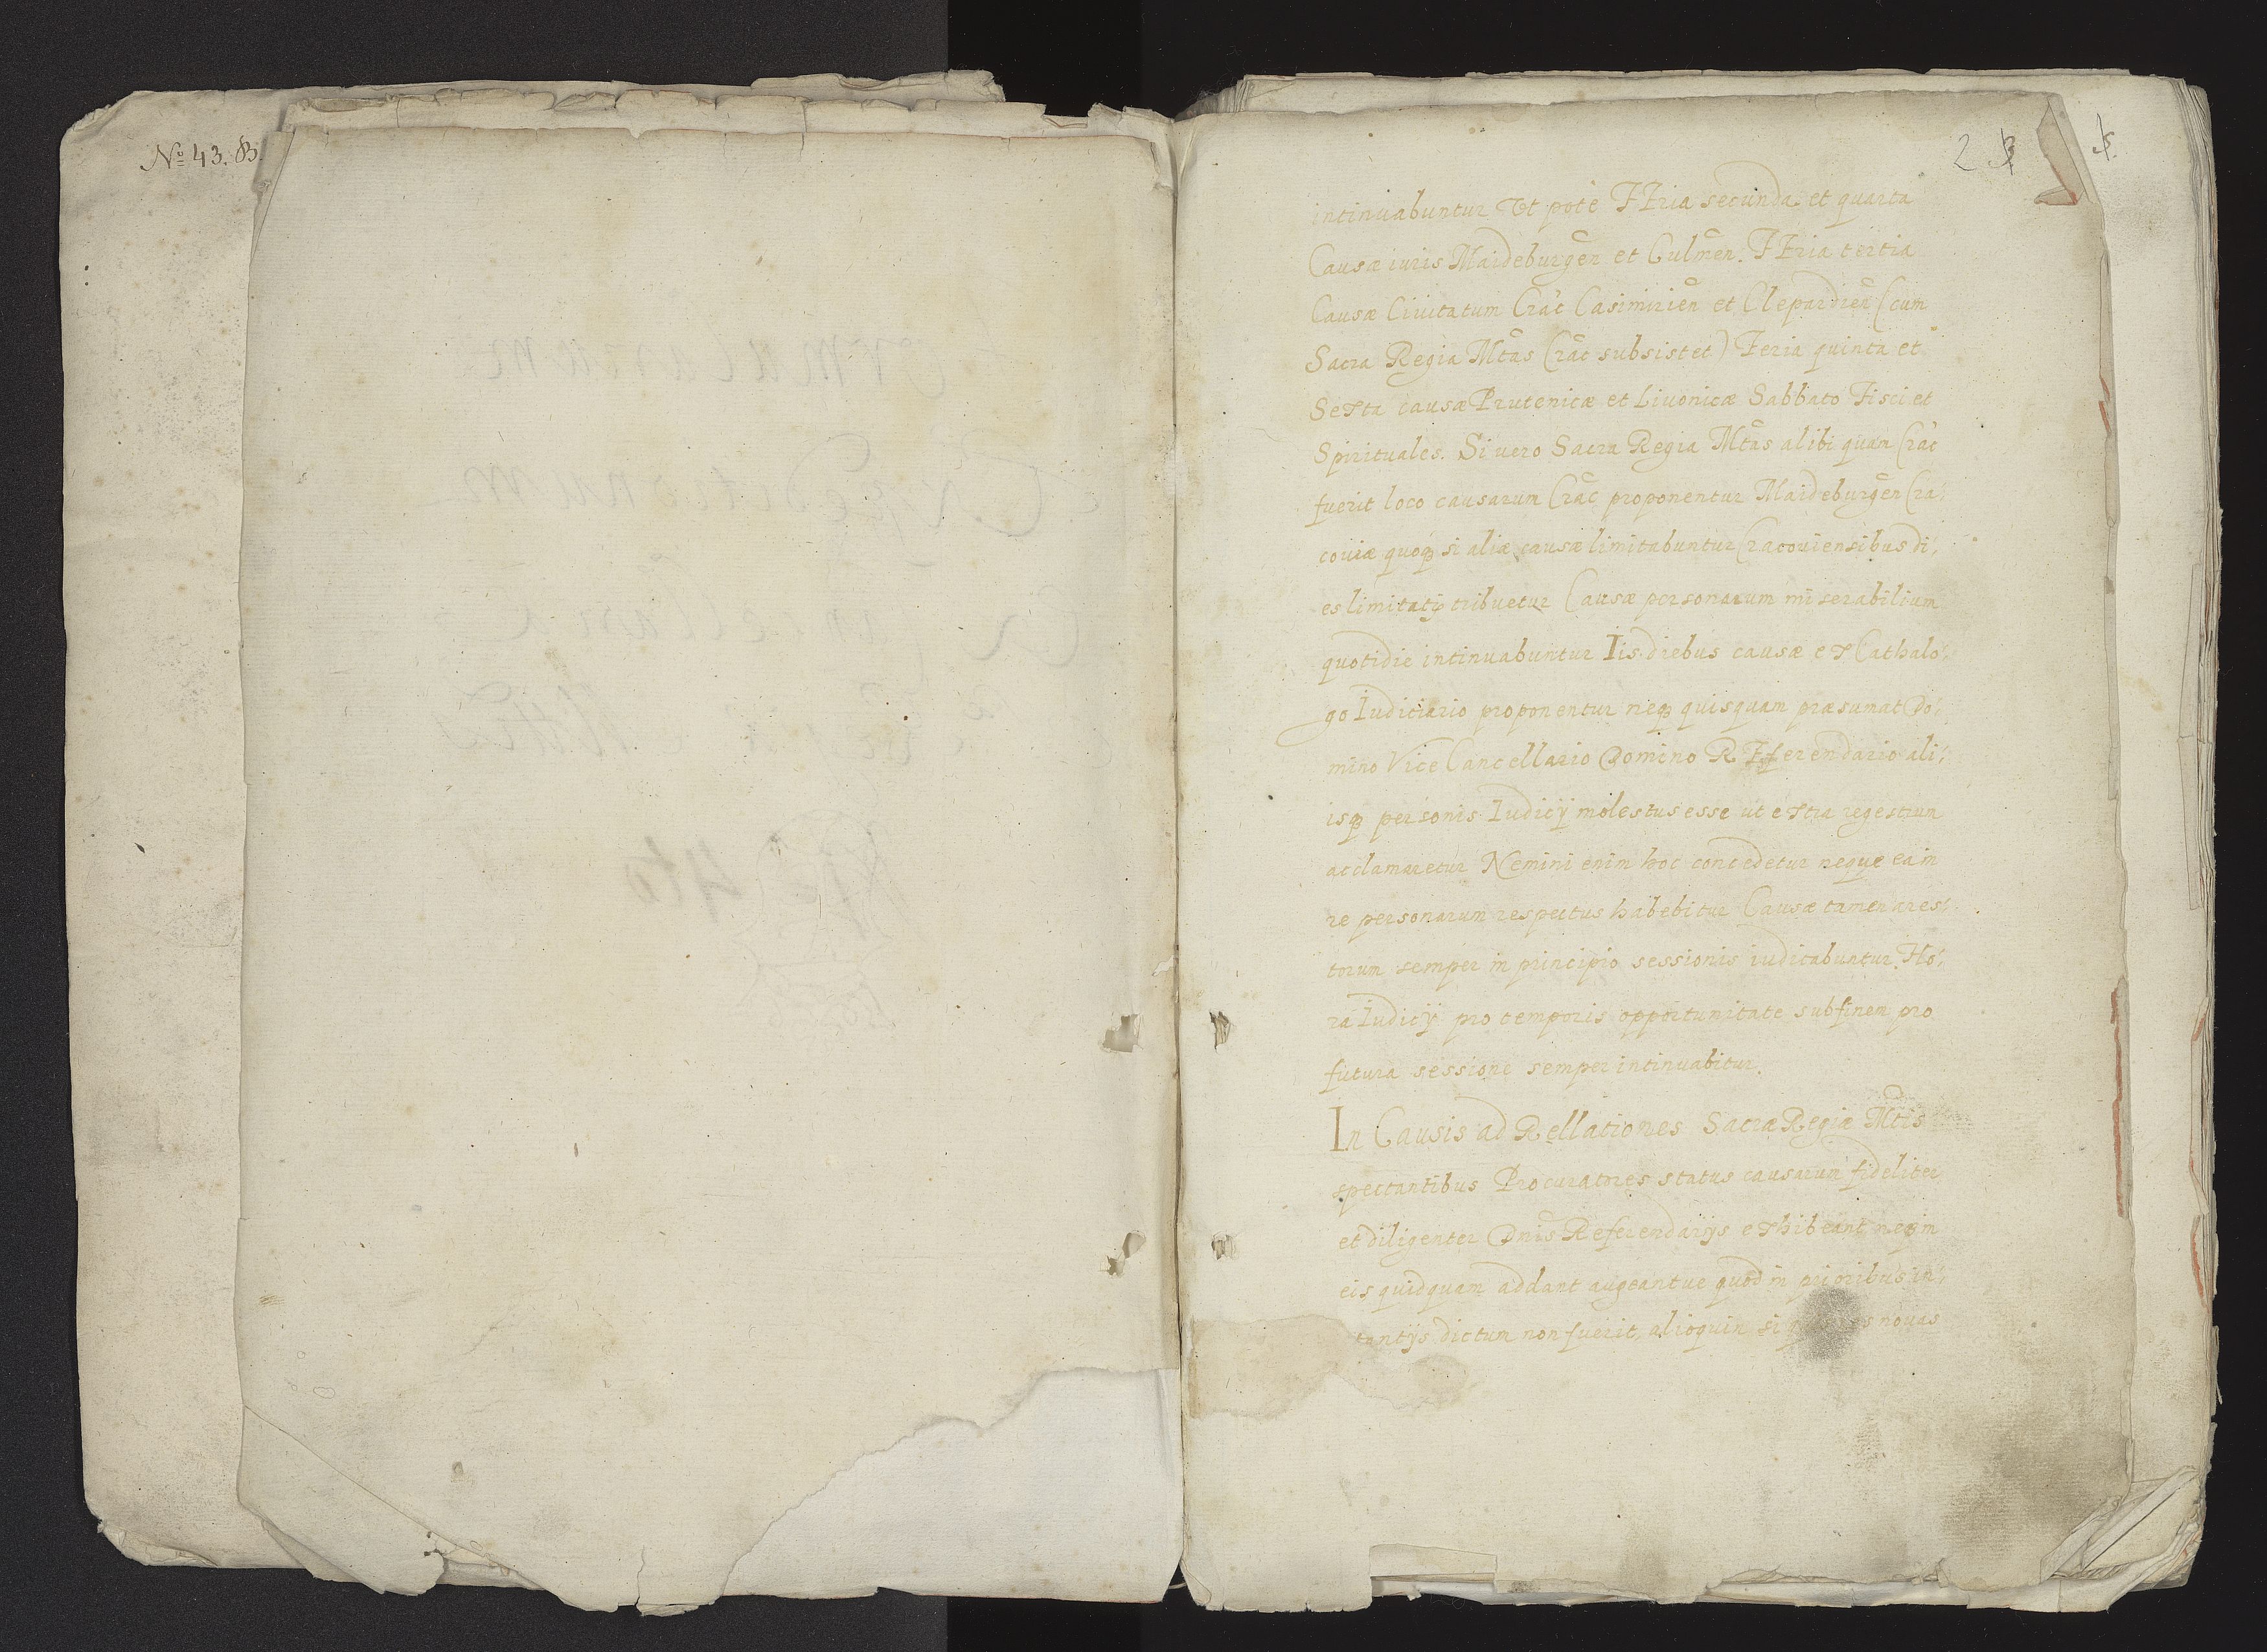 No 43. B.
2
intinuabuntur Ut pote FEria secunda et quarta
Causæ iuris Maideburgen et Culmen. FEria tertia
Causæ Civitatum Crac Casimirien et Clepardien (cum
Sacra Regia Mtas Crac subsistet) Feria quinta et
Sexta causæ Prutenicæ et Livonicæ Sabbato Fisci et
Spirituales. Si vero Sacra Regia Mtas alibi quam Crac
fuerit loco causarum Crac proponentur Maideburgen Cra,
coviæ quoq si aliæ causæ limitabuntur Cracoviensibus di,
es limitatq tribuetur Causæ personarum miserabilium
quotidie intinuabuntur Iis diebus causæ ex Cathalo,
go Iudiciario proponentur neq quisquam præsumat Do,
mino Vice Cancellario Domino REferendario ali,
isq personis Iudicÿ molestus esse ut extra regestrum
acclamaretur NEmini enim hoc concedetur neque ea in
re personarum respectus habebitur Causæ tamen ares,
torum semper in principio sessionis iudicabuntur. Ho,
ra Iudicÿ pro temporis opportunitate sub finem pro
futura sessione semper intinuabitur.
In Causis ad Rellationes Sacræ Regiæ Mtis
spectantibus Procuratores status causarum fideliter
et diligenter Dnis Referendarÿs exhibeant neq in
eis quidquam addant augeantue quod in prioribus in,
tantÿs dictum non fuerit, alioquin si novas